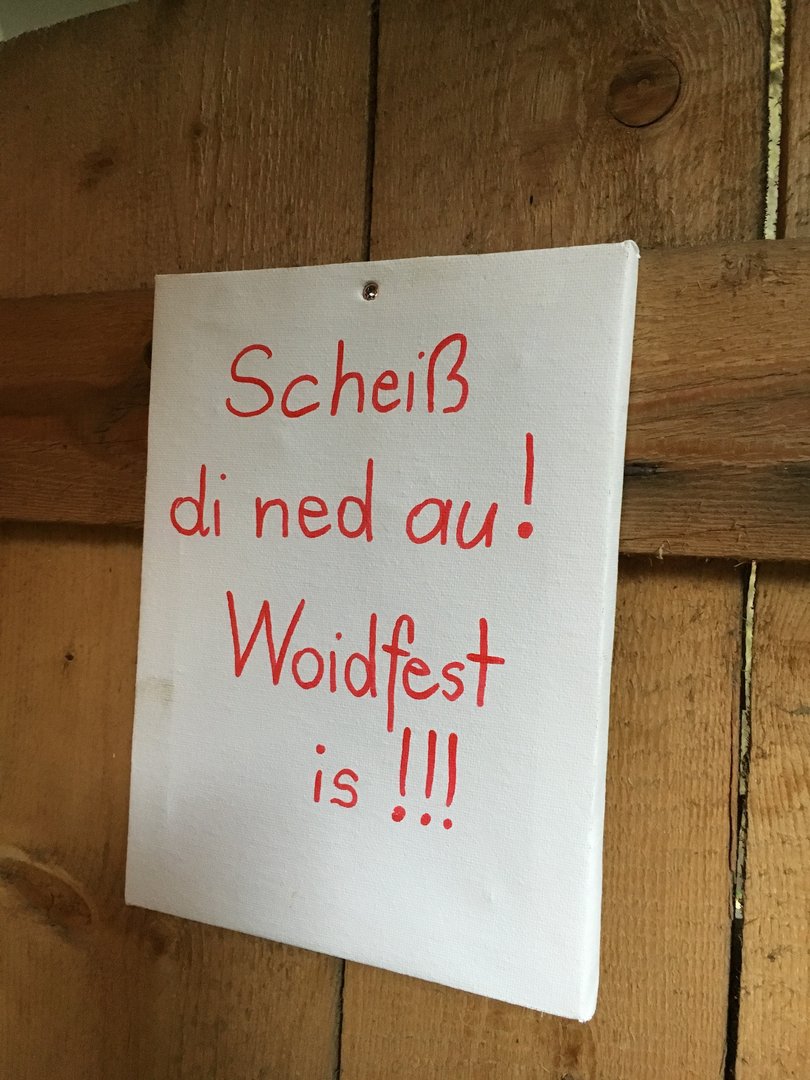 Scheiß
di ned au!
Woidfest
is !!!